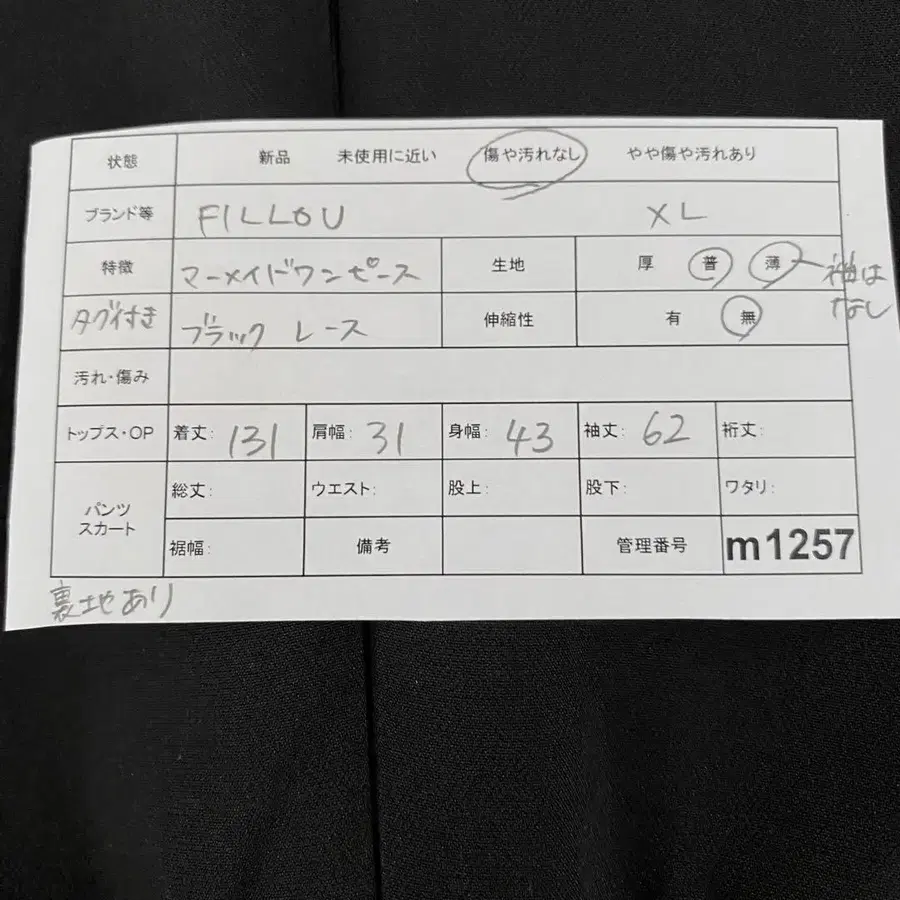 状態 新品 未使用に近い 傷や汚れなし やや傷や汚れあり
ブランド等 FILLOU XL
特徴 マーメイドワンピース 生地 厚 普 薄 袖は
なし
タグ付き ブラック レース 伸縮性 有 無
汚れ・傷み
トップス・OP 着丈: 131 肩幅: 31 身幅: 43 袖丈: 62 裄丈:
パンツ
スカート
総丈: ウエスト: 股上: 股下: ワタリ:
裾幅: 備考 管理番号 m1257
裏地あり